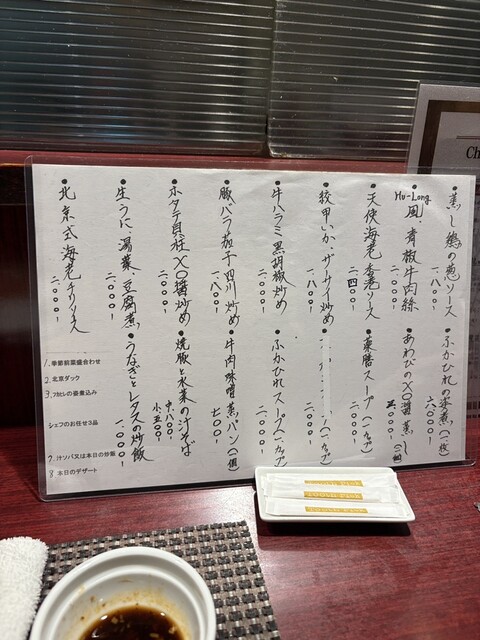 ・蒸し鶏の葱ソース 一、八〇〇-
・Hu-Long 風、青椒牛肉絲 二、〇〇〇-
・天使海老 香港ソース 二、四〇〇-
・紋甲いか、ザーサイ炒め 二、〇〇〇-
・牛ハラミ黒胡椒炒め 二、〇〇〇-
・豚バラ茄子四川炒め 一、八〇〇-
・ホタテ貝柱XO醤炒め 二、〇〇〇-
・生うに、湯葉、豆腐煮 二、〇〇〇-
・北京式海老チリソース 二、〇〇〇-
・ふかひれの姿煮(一枚) 六、〇〇〇-
・あわびのXO醤蒸し(一個)
・薬膳スープ(一カップ) 二、〇〇〇-
(一カップ) 一、八〇〇-
・ふかひれスープ(一カップ) 二、〇〇〇-
・牛肉味噌蒸パン(一個) 七〇〇-
・焼豚と水菜の汁そば 中、一、八〇〇- 小
・うなぎとレタスの炒飯 一、〇〇〇-
1. 季節前菜盛合わせ
2. 北京ダック
3. フカヒレの姿煮込み
シェフのお任せ3品
7. 汁ソバ又は本日の炒飯
8. 本日のデザート
Ch
TOOTH PICK
TOOTH PICK
TOOTH PICK